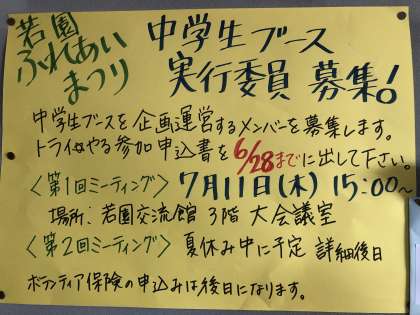 若園
ふれあい
まつり
中学生ブース
実行委員 募集!
中学生ブースを企画運営するメンバーを募集します。
トライやる参加申込書を6/28までに出して下さい。
〈第1回ミーティング〉 7月11日(木) 15:00~
場所: 若園交流館 3階 大会議室
〈第2回ミーティング〉 夏休み中に予定 詳細後日
ボランティア保険の申込みは後日になります。